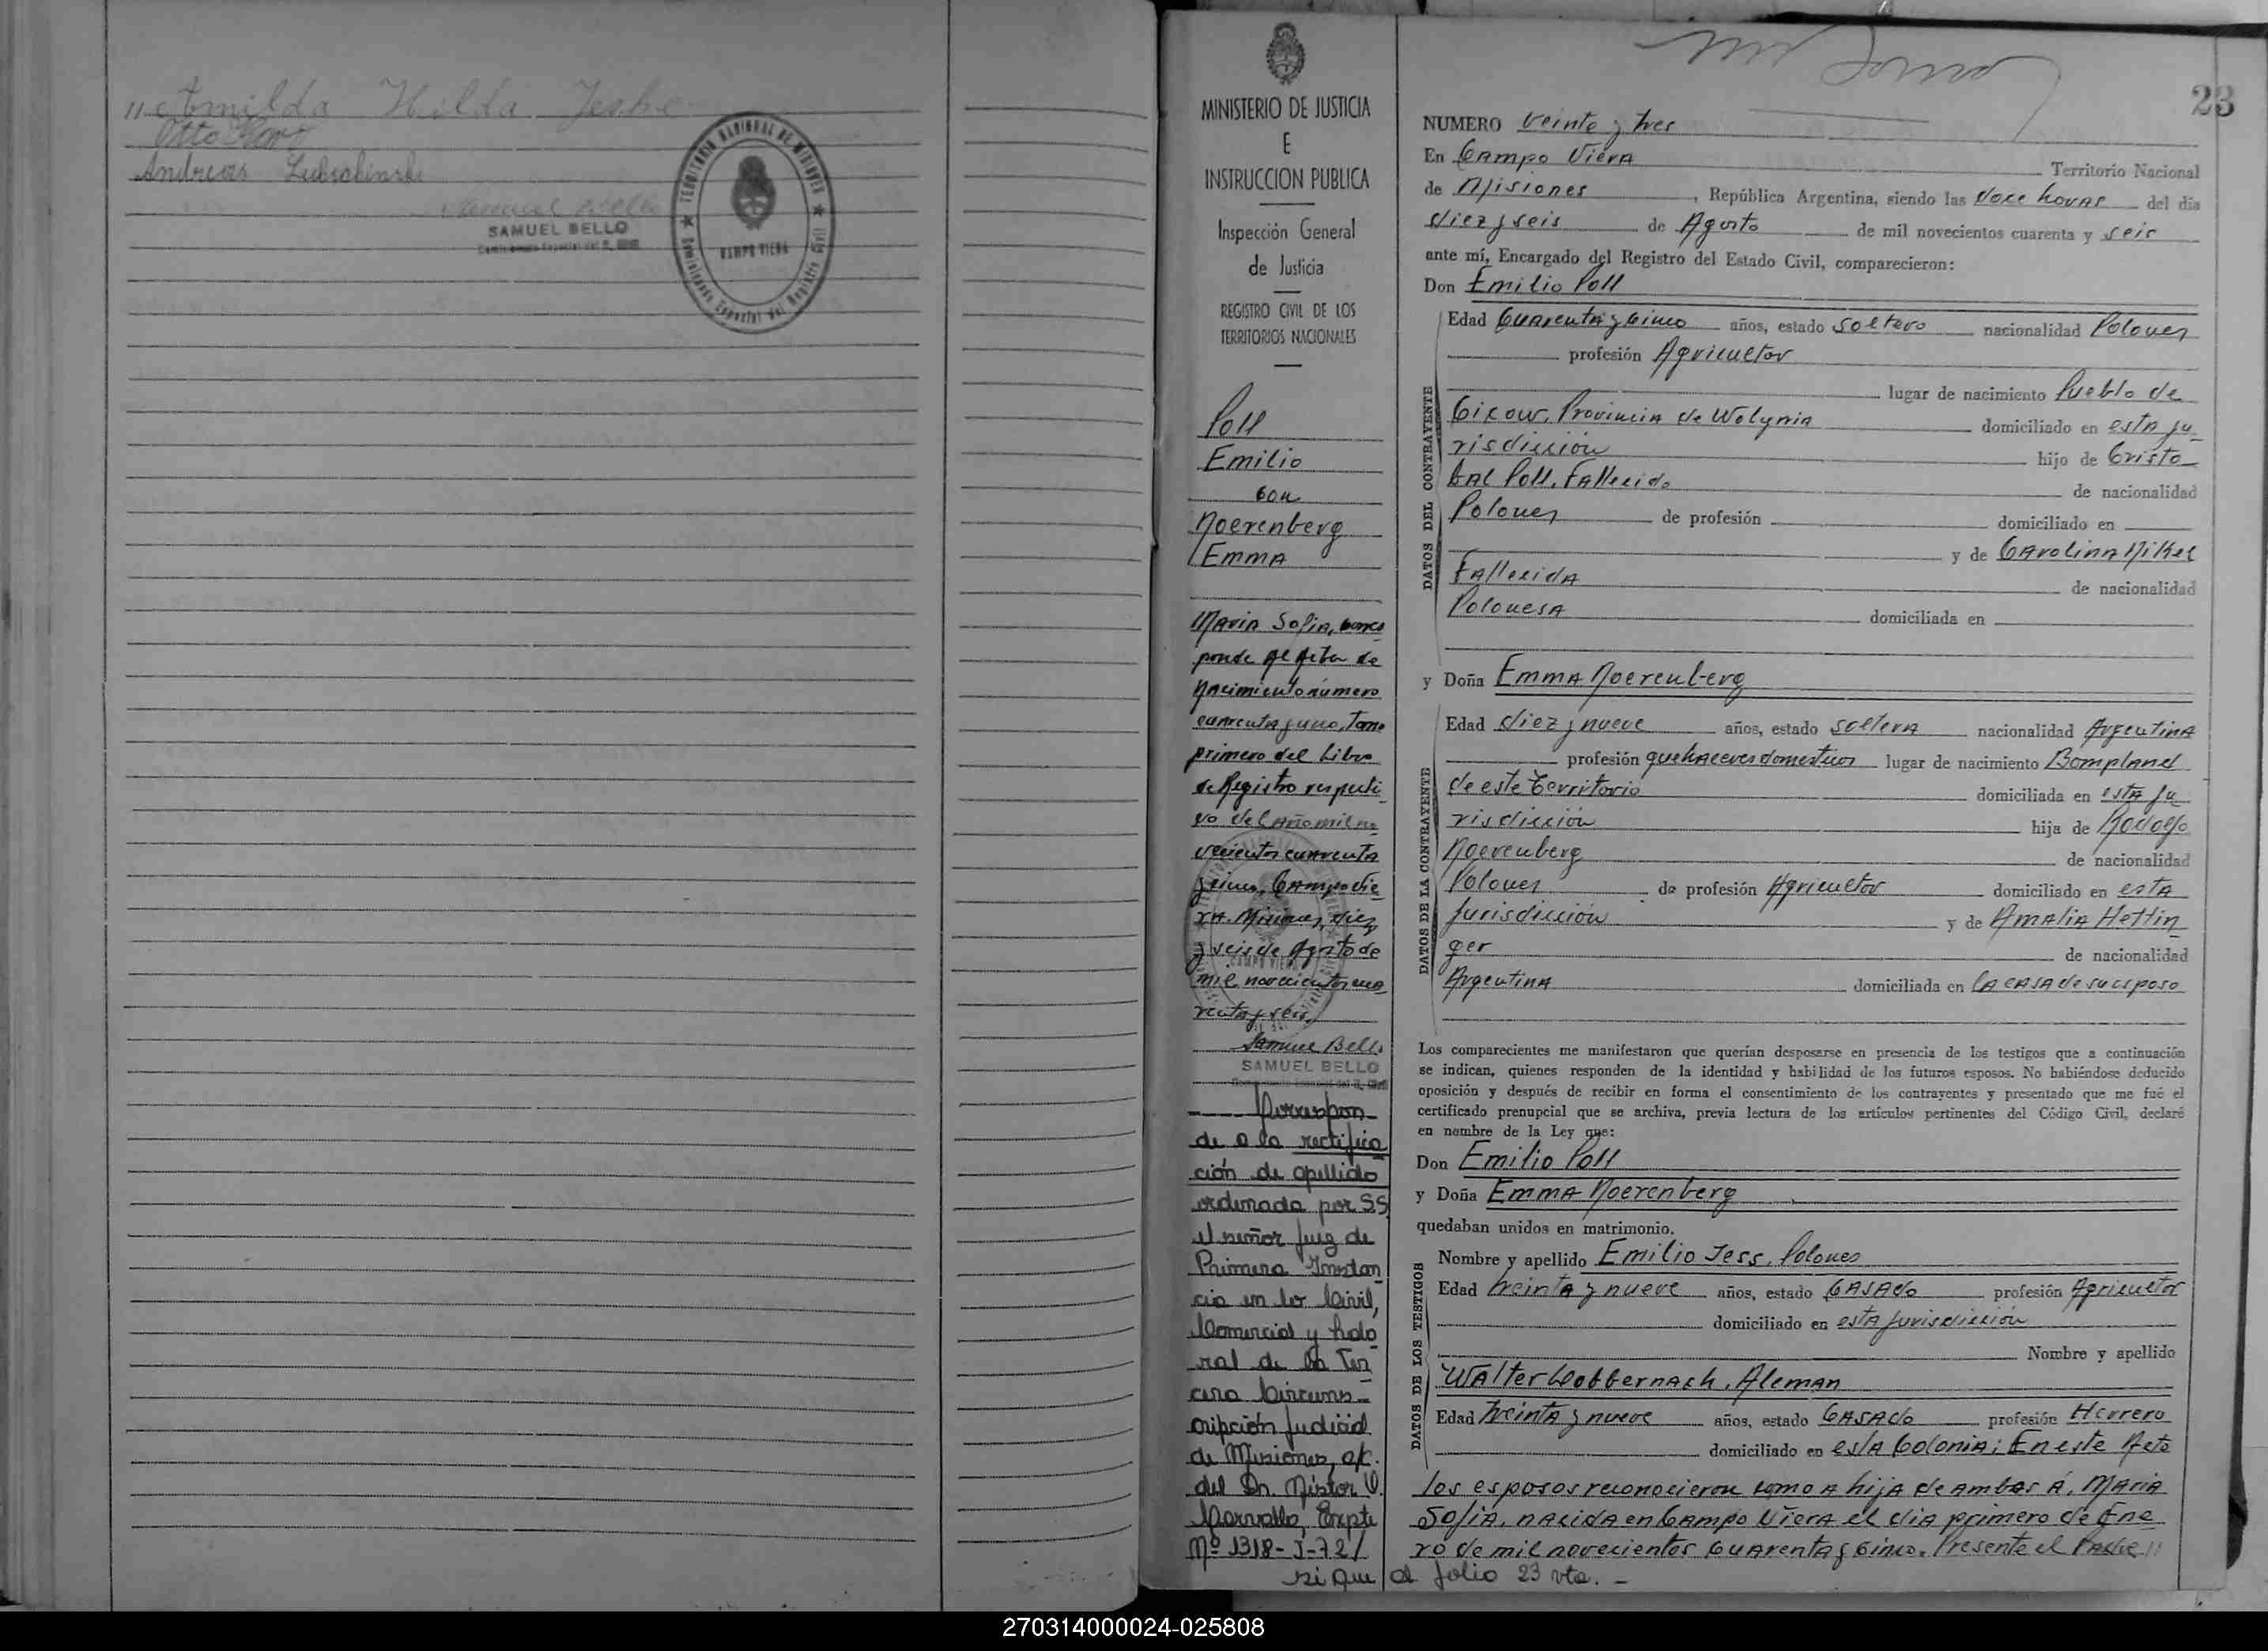 Armilda Hilda Jeske
Otto
Andreas Lubschinski
SAMUEL BELLO
TERRITORIO NACIONAL DE MISIONES
CAMPO VIERA
MINISTERIO DE JUSTICIA
E
INSTRUCCION PUBLICA
Inspección General
de Justicia
REGISTRO CIVIL DE LOS
TERRITORIOS NACIONALES
Poll
Emilio
con
Noerenberg
Emma
Maria Sofia, corres
ponde al Acta de
Nacimiento número
cuarenta y uno, Tomo
primero del Libro
de Registro respecti
vo del año mil no
vecientos cuarenta
y cinco, Campo Vie
ra. Misiones, diez
y seis de Agosto de
mil novecientos cua
renta y seis.
Samuel Bello
SAMUEL BELLO
Correspon
de a la rectifica
ción de apellido
ordenada por SS
el señor Juez de
Primera Instan
cia en lo Civil,
Comercial y Labo
ral de la Ter
cera Circuns
cripción Judicial
de Misiones, a/c.
del Dr. Néstor O.
Carvallo, Expte
Nº 1318-J-72/
sigue al folio 23 vta. -
23
NUMERO Veinte y tres
En Campo Viera Territorio Nacional
de Misiones, República Argentina, siendo las doce horas del día
diez y seis de Agosto de mil novecientos cuarenta y seis
ante mí, Encargado del Registro del Estado Civil, comparecieron:
Don Emilio Poll
DATOS DEL CONTRAYENTE
Edad Cuarenta y cinco años, estado soltero nacionalidad Polones
profesión Agricultor
lugar de nacimiento Pueblo de
Gixow, Provincia de Wolynia domiciliado en esta ju-
risdicción hijo de Cristo-
bal Poll, Fallecido de nacionalidad
Polones de profesión domiciliado en
y de Carolina Nikel
Fallecida de nacionalidad
Polonesa domiciliada en
y Doña Emma Noerenberg
DATOS DE LA CONTRAYENTE
Edad diez y nueve años, estado soltera nacionalidad Argentina
profesión quehaceres domesticos lugar de nacimiento Bompland
de este territorio domiciliada en esta ju-
risdicción hija de Rodolfo
Noerenberg de nacionalidad
Polones de profesión Agricultor domiciliado en esta
Jurisdicción y de Amalia Hettin
ger de nacionalidad
Argentina domiciliada en la casa de su esposo
Los comparecientes me manifestaron que querían desposarse en presencia de los testigos que a continuación
se indican, quienes responden de la identidad y habilidad de los futuros esposos. No habiéndose deducido
oposición y después de recibir en forma el consentimiento de los contrayentes y presentado que me fué el
certificado prenupcial que se archiva, previa lectura de los artículos pertinentes del Código Civil, declaré
en nombre de la Ley que:
Don Emilio Poll
y Doña Emma Noerenberg
quedaban unidos en matrimonio.
DATOS DE LOS TESTIGOS
Nombre y apellido Emilio Jess, Polones
Edad treinta y nueve años, estado Casado profesión Agricultor
domiciliado en esta jurisdicción
Nombre y apellido
Walter Dobbernack, Aleman
Edad treinta y nueve años, estado Casado profesión Herrero
domiciliado en esta Colonia; En este Acto
los esposos reconocieron como a hija de ambos á, Maria
Sofia, nacida en Campo Viera el dia primero de Ene
ro de mil novecientos cuarenta y cinco. Presente el Padre //
270314000024-025808